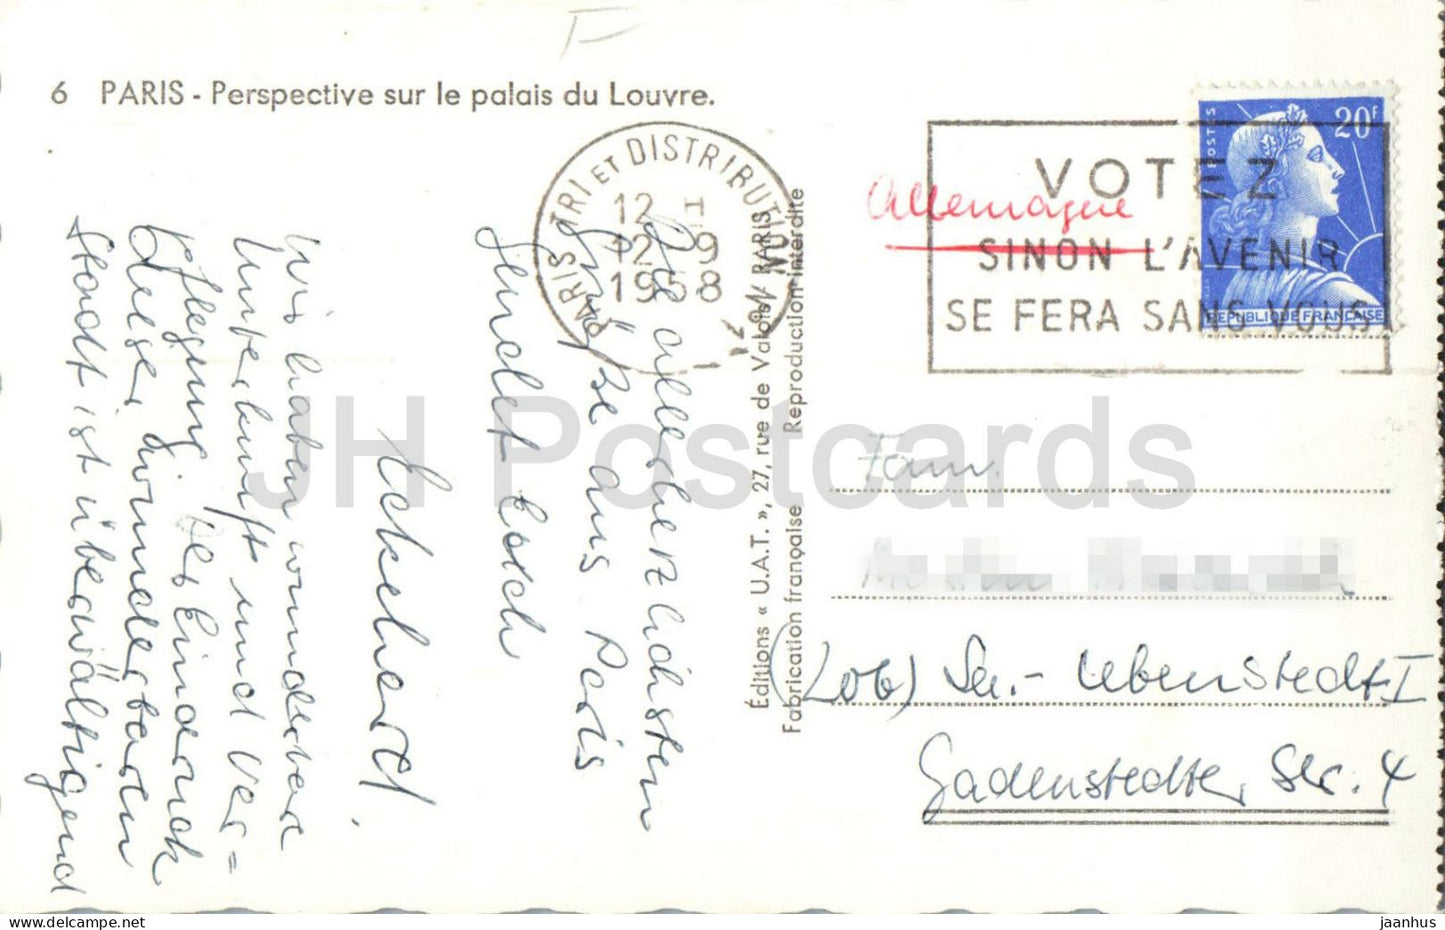 6 PARIS - Perspective sur le palais du Louvre.
PARIS TRI ET DISTRIBUTION
12 I
12 9
1958
VOTEZ
SINON L'AVENIR
SE FERA SANS VOUS
POSTES
20F
REPUBLIQUE FRANÇAISE
Allemagne
Die allerherzlichsten
Grüße aus Paris
sendet Euch
Eckehard.
Wir haben wunderbare
Unterkunft und Ver=
pflegung. Der Eindruck
dieser wunderbaren
Stadt ist überwältigend
Éditions « U.A.T. », 27, rue de Valois, PARIS
Fabrication française Reproduction interdite
Fam.
(20b) Sa.- Lebenstedt I
Gadenstedter Str. 4
JH Postcards
www.delcampe.net
jaanhus